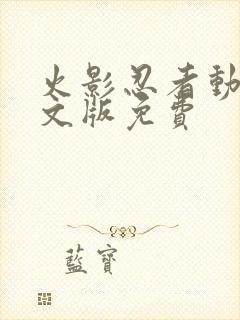 火影忍者動
文版免費
藍寶